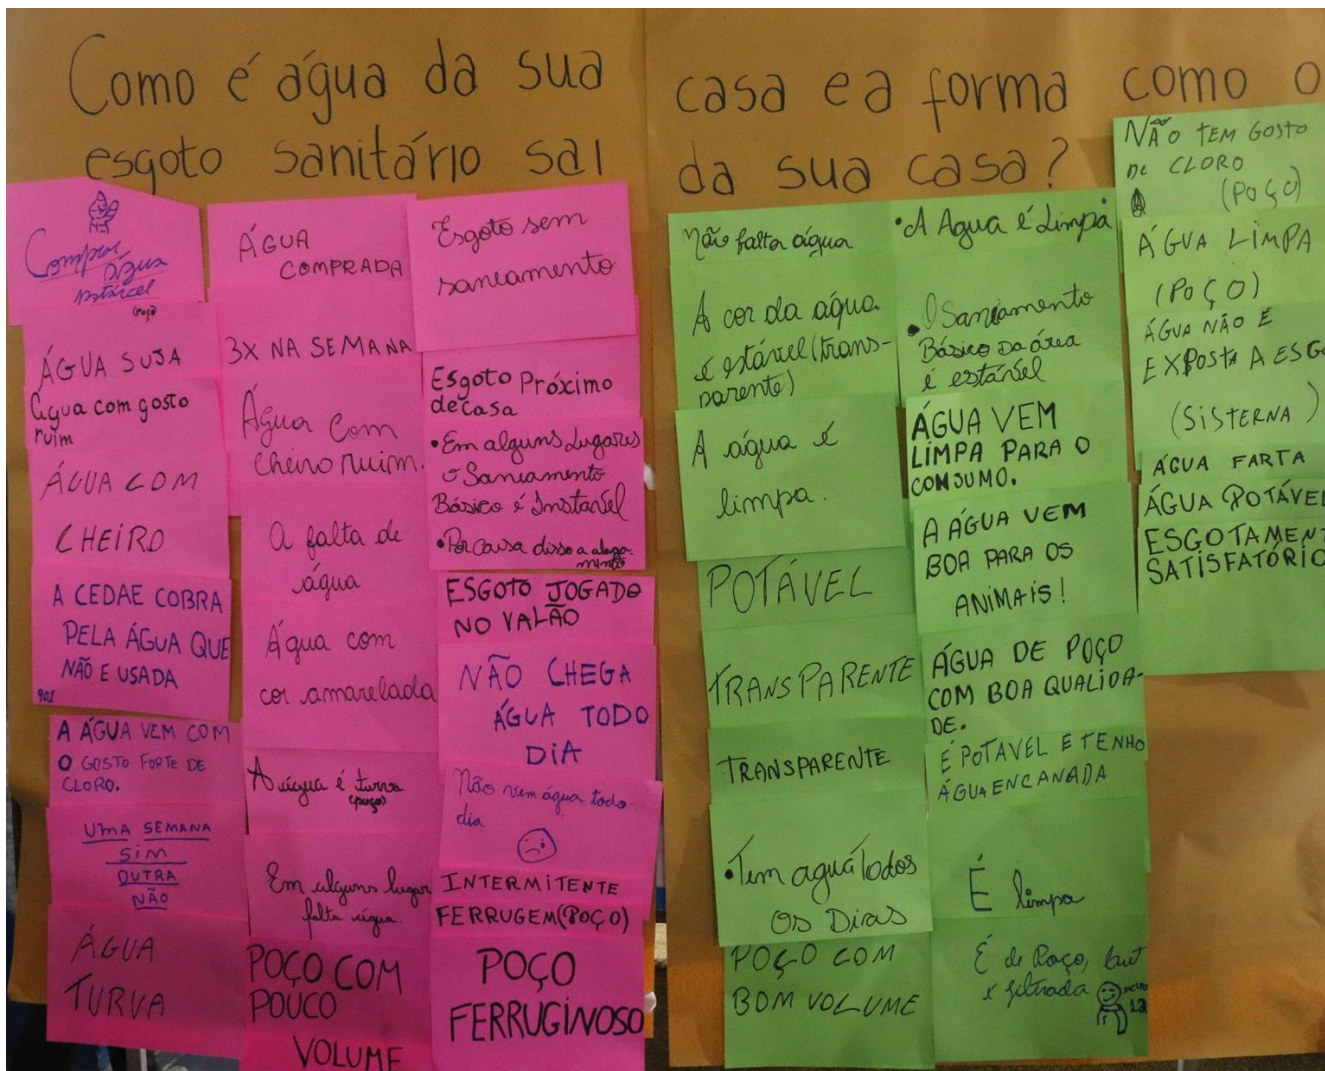 Como é água da sua casa e a forma como o
esgoto sanitário sai da sua casa?
Comprar
água
potável
(poço)
ÁGUA SUJA
Água com gosto
ruim
ÁGUA COM
CHEIRO
A CEDAE COBRA
PELA ÁGUA QUE
NÃO E USADA
901
A ÁGUA VEM COM
O GOSTO FORTE DE
CLORO.
UMA SEMANA
SIM
OUTRA
NÃO
ÁGUA
TURVA
ÁGUA
COMPRADA
3X NA SEMANA
Água com
cheiro ruim.
A falta de
água
Água com
cor amarelada
A água é turva
(poço)
Em alguns lugar
falta água.
POÇO COM
POUCO
VOLUME
Esgoto sem
saneamento
Esgoto Próximo
de casa
• Em alguns Lugares
o Saneamento
Básico é Instavel
• Por causa disso a alaga
mento
ESGOTO JOGADO
NO VALÃO
NÃO CHEGA
ÁGUA TODO
DIA
Não vem água todo
dia
INTERMITENTE
FERRUGEM (POÇO)
POÇO
FERRUGINOSO
Não falta água
A cor da água
é estável (trans-
parente)
A água é
limpa.
POTÁVEL
TRANSPARENTE
TRANSPARENTE
• Tem agua Todos
Os Dias
POÇO COM
BOM VOLUME
• A Agua é Limpa
• O Saneamento
Básico Da área
é estável
ÁGUA VEM
LIMPA PARA O
CONSUMO.
A ÁGUA VEM
BOA PARA OS
ANIMAIS!
ÁGUA DE POÇO
COM BOA QUALIDA-
DE.
E POTAVEL E TENHO
ÁGUA ENCANADA
É limpa
É de Poço, but
é filtrada
NÃO TEM GOSTO
DE CLORO
(POÇO)
ÁGUA LIMPA
(POÇO)
ÁGUA NÃO E
EXPOSTA A ESG
(SISTERNA)
ÁGUA FARTA
ÁGUA POTÁVEL
ESGOTAMENT
SATISFATÓRIO